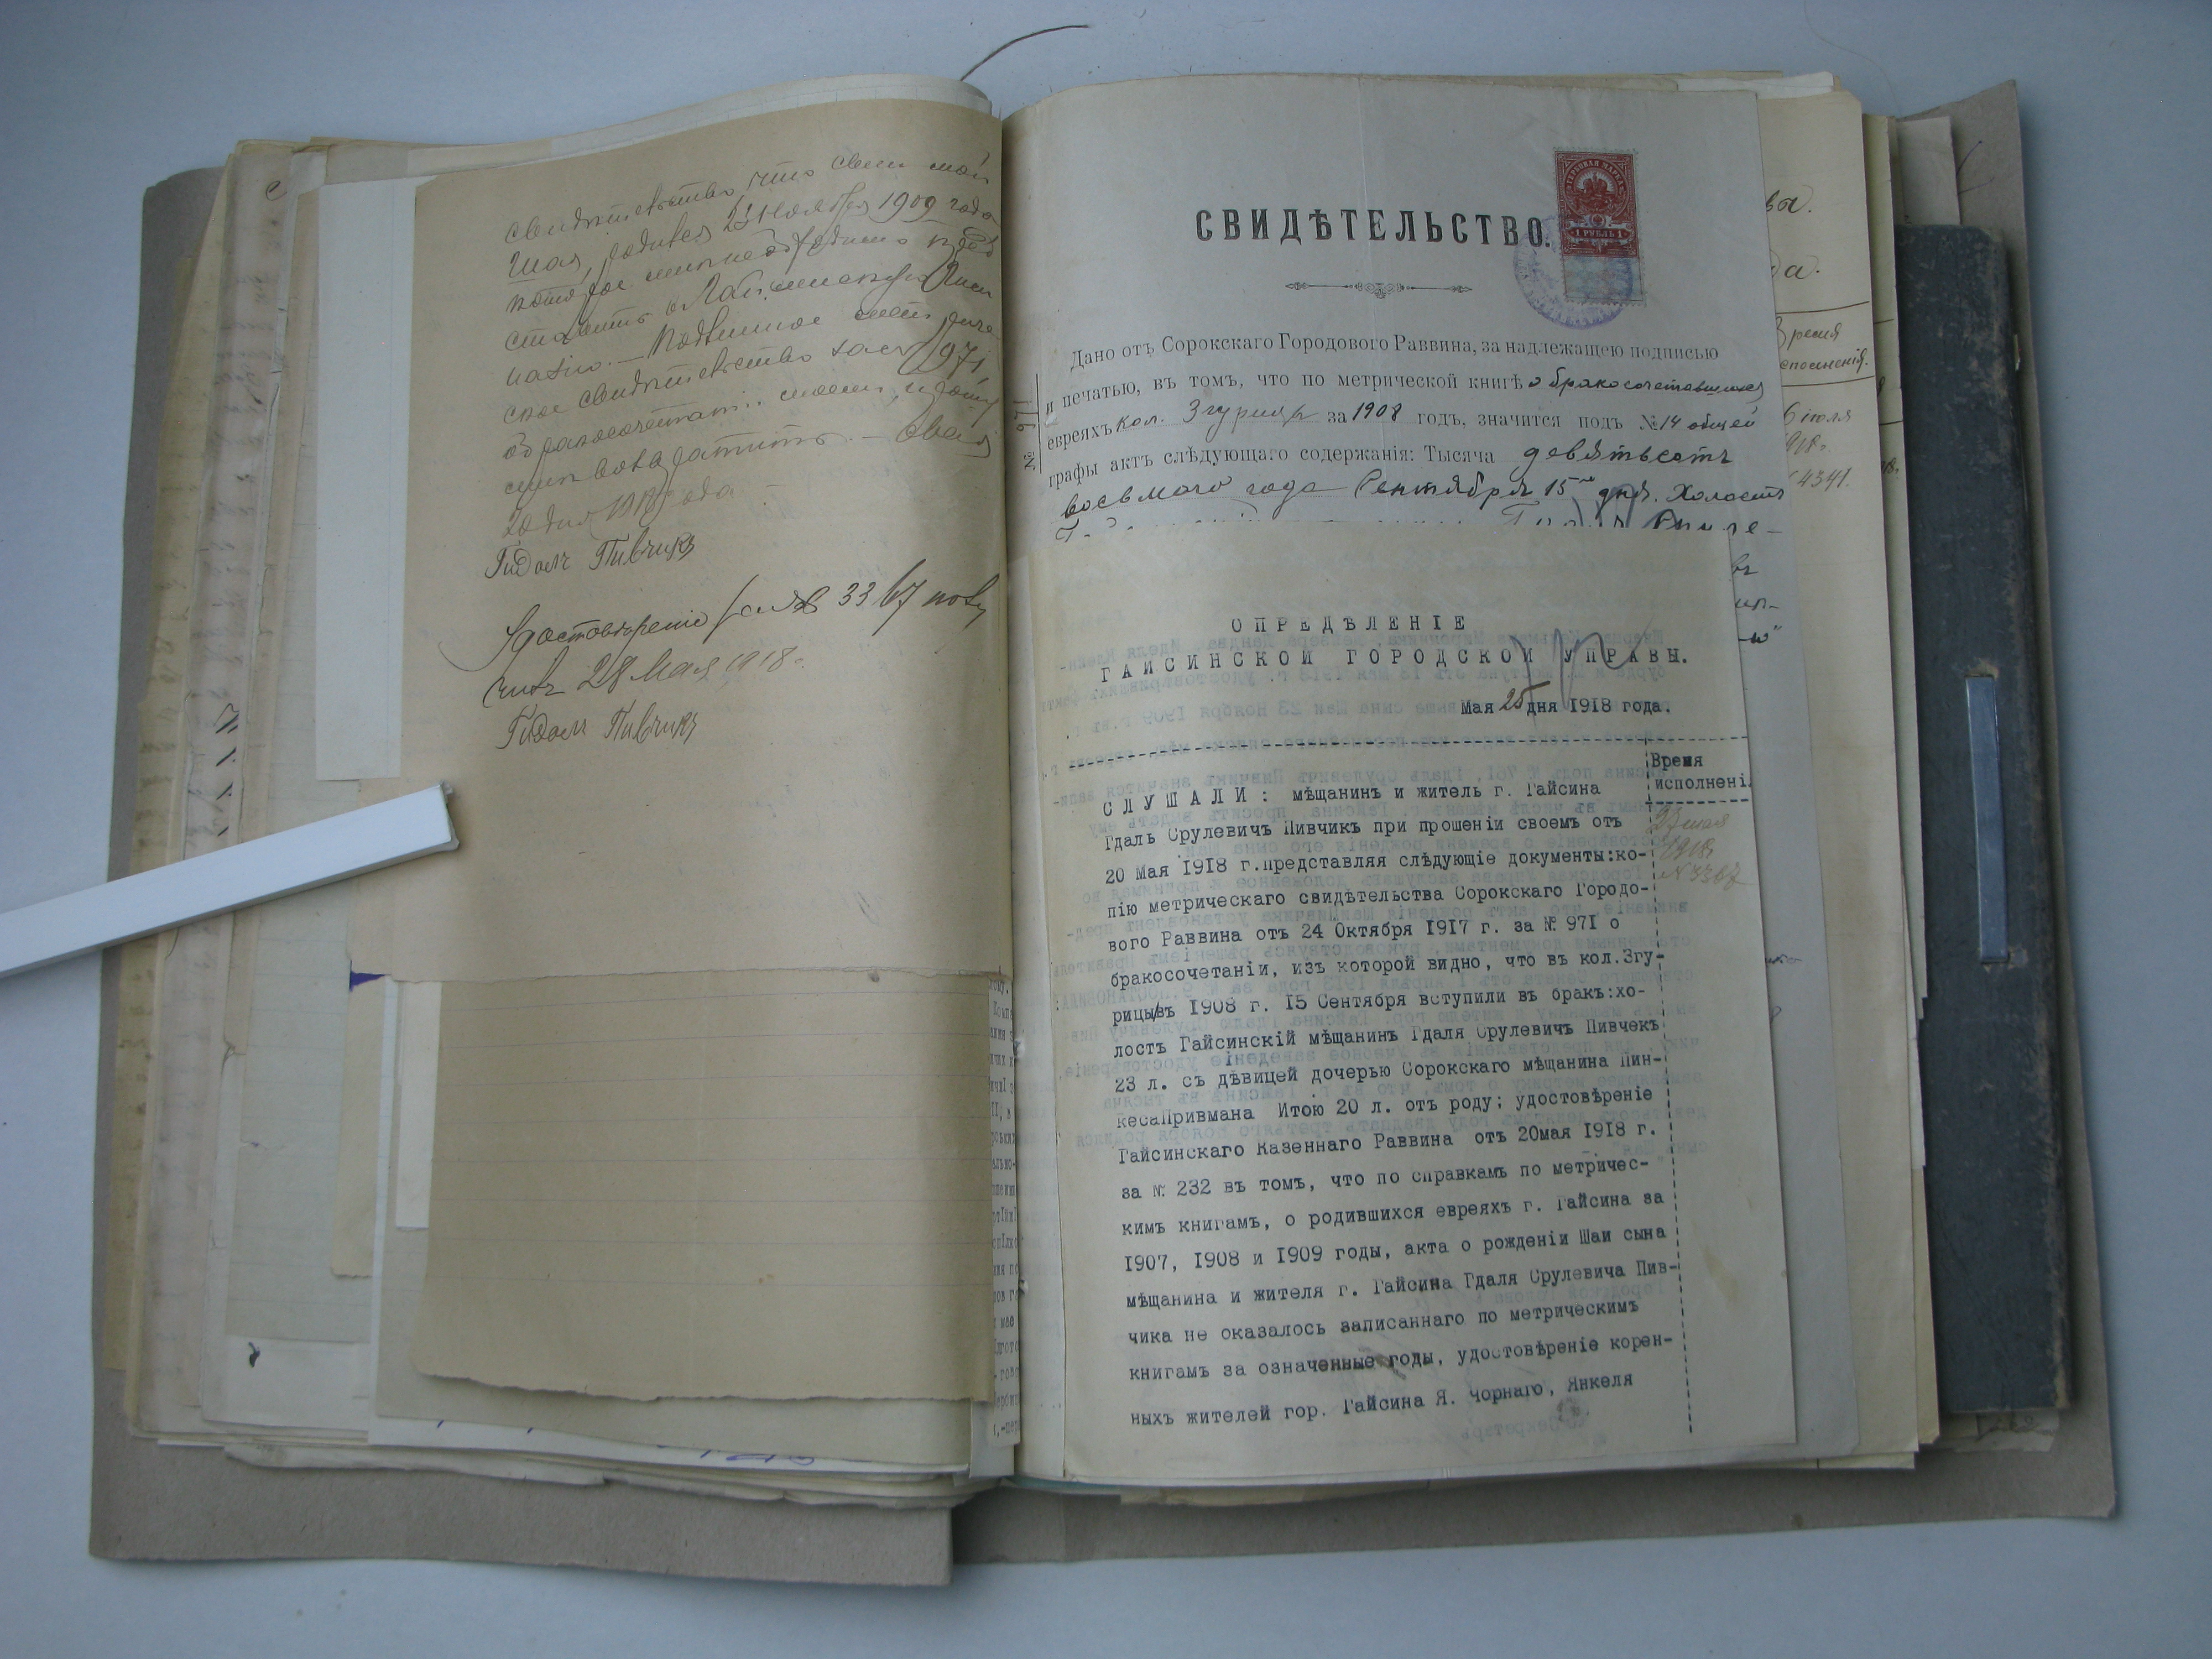 свидѣтельство, что сынъ мой
Шая, родился 23 Ноября 1909 года
которое мнѣ необходимо пред
ставить въ
назію. — Подлинное метриче
ское свидѣтельство за № 971
о бракосочетаніи моемъ, прошу
мнѣ возвратить. — Мая
20 дня 1918 года
Гидаль Пивчикъ
Удостовѣреніе за № 3367 полу
чилъ 28 Мая 1918 г.
Гидаль Пивчикъ
СВИДѢТЕЛЬСТВО.
1 РУБЛЬ 1
Дано отъ Сорокскаго Городового Раввина, за надлежащею подписью
и печатью, въ томъ, что по метрической книгѣ о бракосочетавшихся
евреяхъ кол. Згурица за 1908 годъ, значится подъ № 14 общей
графы актъ слѣдующаго содержанія: Тысяча девятьсотъ
восьмого года Сентября 15го дня. Холостъ
№ 971
ОПРЕДѢЛЕНІЕ
ГАЙСИНСКОЙ ГОРОДСКОЙ УПРАВЫ.
Мая 25 дня 1918 года.
Время
исполнені
27 мая
1918
№ 3367
СЛУШАЛИ: мѣщанинъ и житель г. Гайсина
Гдаль Срулевичъ Пивчикъ при прошеніи своемъ отъ
20 Мая 1918 г.представляя слѣдующіе документы:ко-
пію метрическаго свидѣтельства Сорокскаго Городо-
вого Раввина отъ 24 Октября 1917 г. за № 971 о
бракосочетаніи, изъ которой видно, что въ кол.Згу-
рицы/въ 1908 г. 15 Сентября вступили въ бракъ:хо-
лостъ Гайсинскій мѣщанинъ Гдаля Срулевичъ Пивчекъ
23 л. съ дѣвицей дочерью Сорокскаго мѣщанина Пин-
кесаПривмана Итою 20 л. отъ роду; удостовѣреніе
Гайсинскаго Казеннаго Раввина отъ 20мая 1918 г.
за № 232 въ томъ, что по справкамъ по метричес-
кимъ книгамъ, о родившихся евреяхъ г. Гайсина за
1907, 1908 и 1909 годы, акта о рожденіи Шаи сына
мѣщанина и жителя г. Гайсина Гдаля Срулевича Пив-
чика не оказалось записаннаго по метрическимъ
книгамъ за означенные годы, удостовѣреніе корен-
ныхъ жителей гор. Гайсина Я. Чорнаго, Янкеля